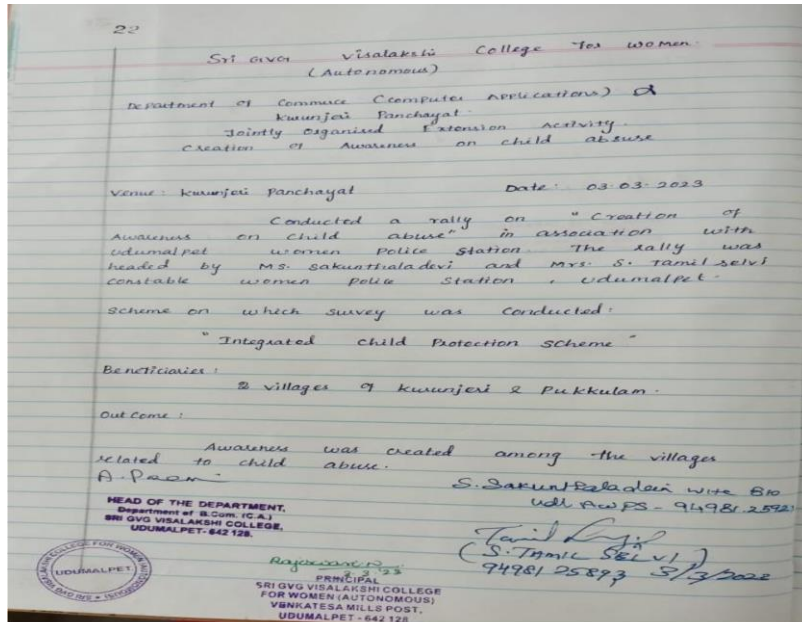 22
Sri GVG Visalakshi College for women.
(Autonomous)
Department of Commerce (Computer Applications) &
Kurunjeri Panchayat.
Jointly Organised Extension Activity.
Creation of Awareness on child abuse
Venue: Kurunjeri Panchayat Date: 03.03.2023
Conducted a rally on "Creation of
Awareness on child abuse" in association with
Udumalpet women Police Station. The rally was
headed by Ms. Sakunthaladevi and Mrs. S. Tamil selvi
constable women police station, Udumalpet.
Scheme on which survey was conducted:
"Integrated child Protection scheme"
Beneficiaries:
2 villages of Kurunjeri & Pukkulam.
Out come:
Awareness was created among the villages
related to child abuse.
S. Sakunthaladevi
AWPS - 94981 25921
HEAD OF THE DEPARTMENT,
Department of B.Com. (C.A.)
SRI GVG VISALAKSHI COLLEGE,
UDUMALPET - 642 128.
(S. TAMIL SELVI)
94981 25893 3/3/2023
UDUMALPET
PRINCIPAL
SRI GVG VISALAKSHI COLLEGE
FOR WOMEN (AUTONOMOUS)
VENKATESA MILLS POST,
UDUMALPET - 642 128